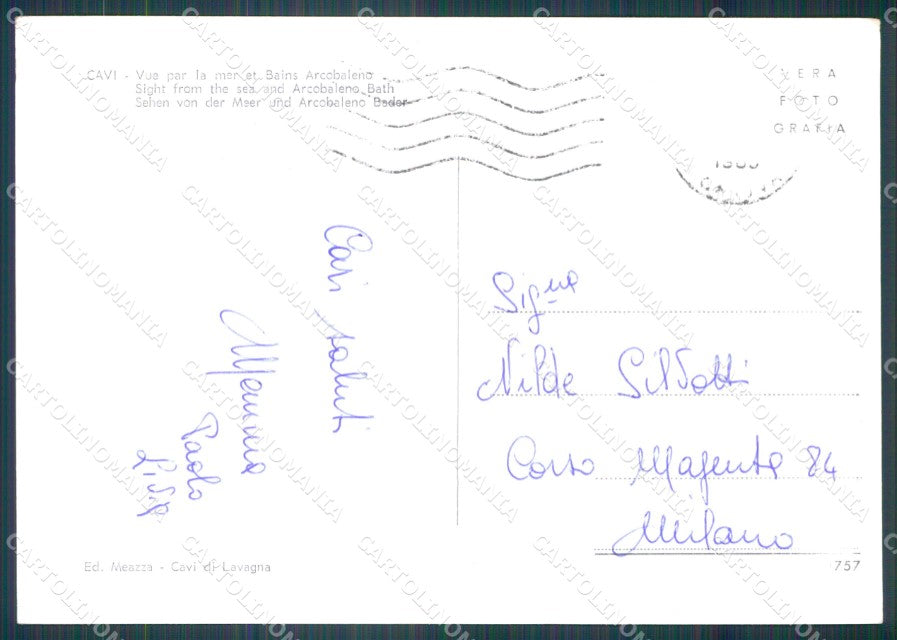 CAVI - Vue par la mer et Bains Arcobaleno
Sight from the sea and Arcobaleno Bath
Sehen von der Meer und Arcobaleno Bader
VERA
FOTO
GRAFIA
Cari saluti
Mamma
Paolo
Livia
Sig.na
Nilde Silvotti
Corso Magenta 84
Milano
Ed. Meazza - Cavi di Lavagna
757
CARTOLINOMANIA